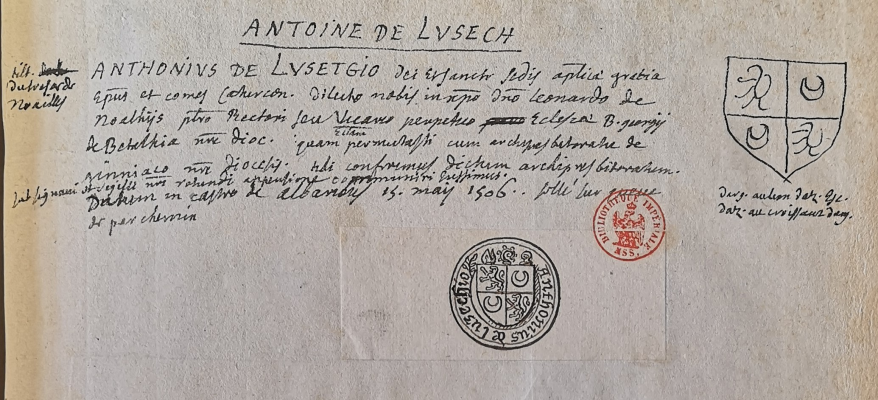 ANTOINE DE LVSECH
ANTHONIVS DE LVSETGIO dei et sancte sedis aplice gratia
Epus et comes Caturcen. Dilecto nobis in xpo dno Leonardo de
Noalhijs pbro Rectori seu Vicario perpetuo Eclesia B. georgij
de Betalhia nre dioc. quam permutasti cum archipresbiteratu de
nre Diocesis. tibi conferimus dictum archipresbiteratum.
et sigilli nri rotundi appensione communiri fecimus.
Datum in castro de albanor 15. maij 1506.. sellé sur queue
de parchemin
tilt.
Du tresor de
Noailles
darg. au lion daz. Esc.
daz. au croissant darg.
Anthonius de Lusetgio
BIBLIOTHEQUE IMPERIALE
MSS.